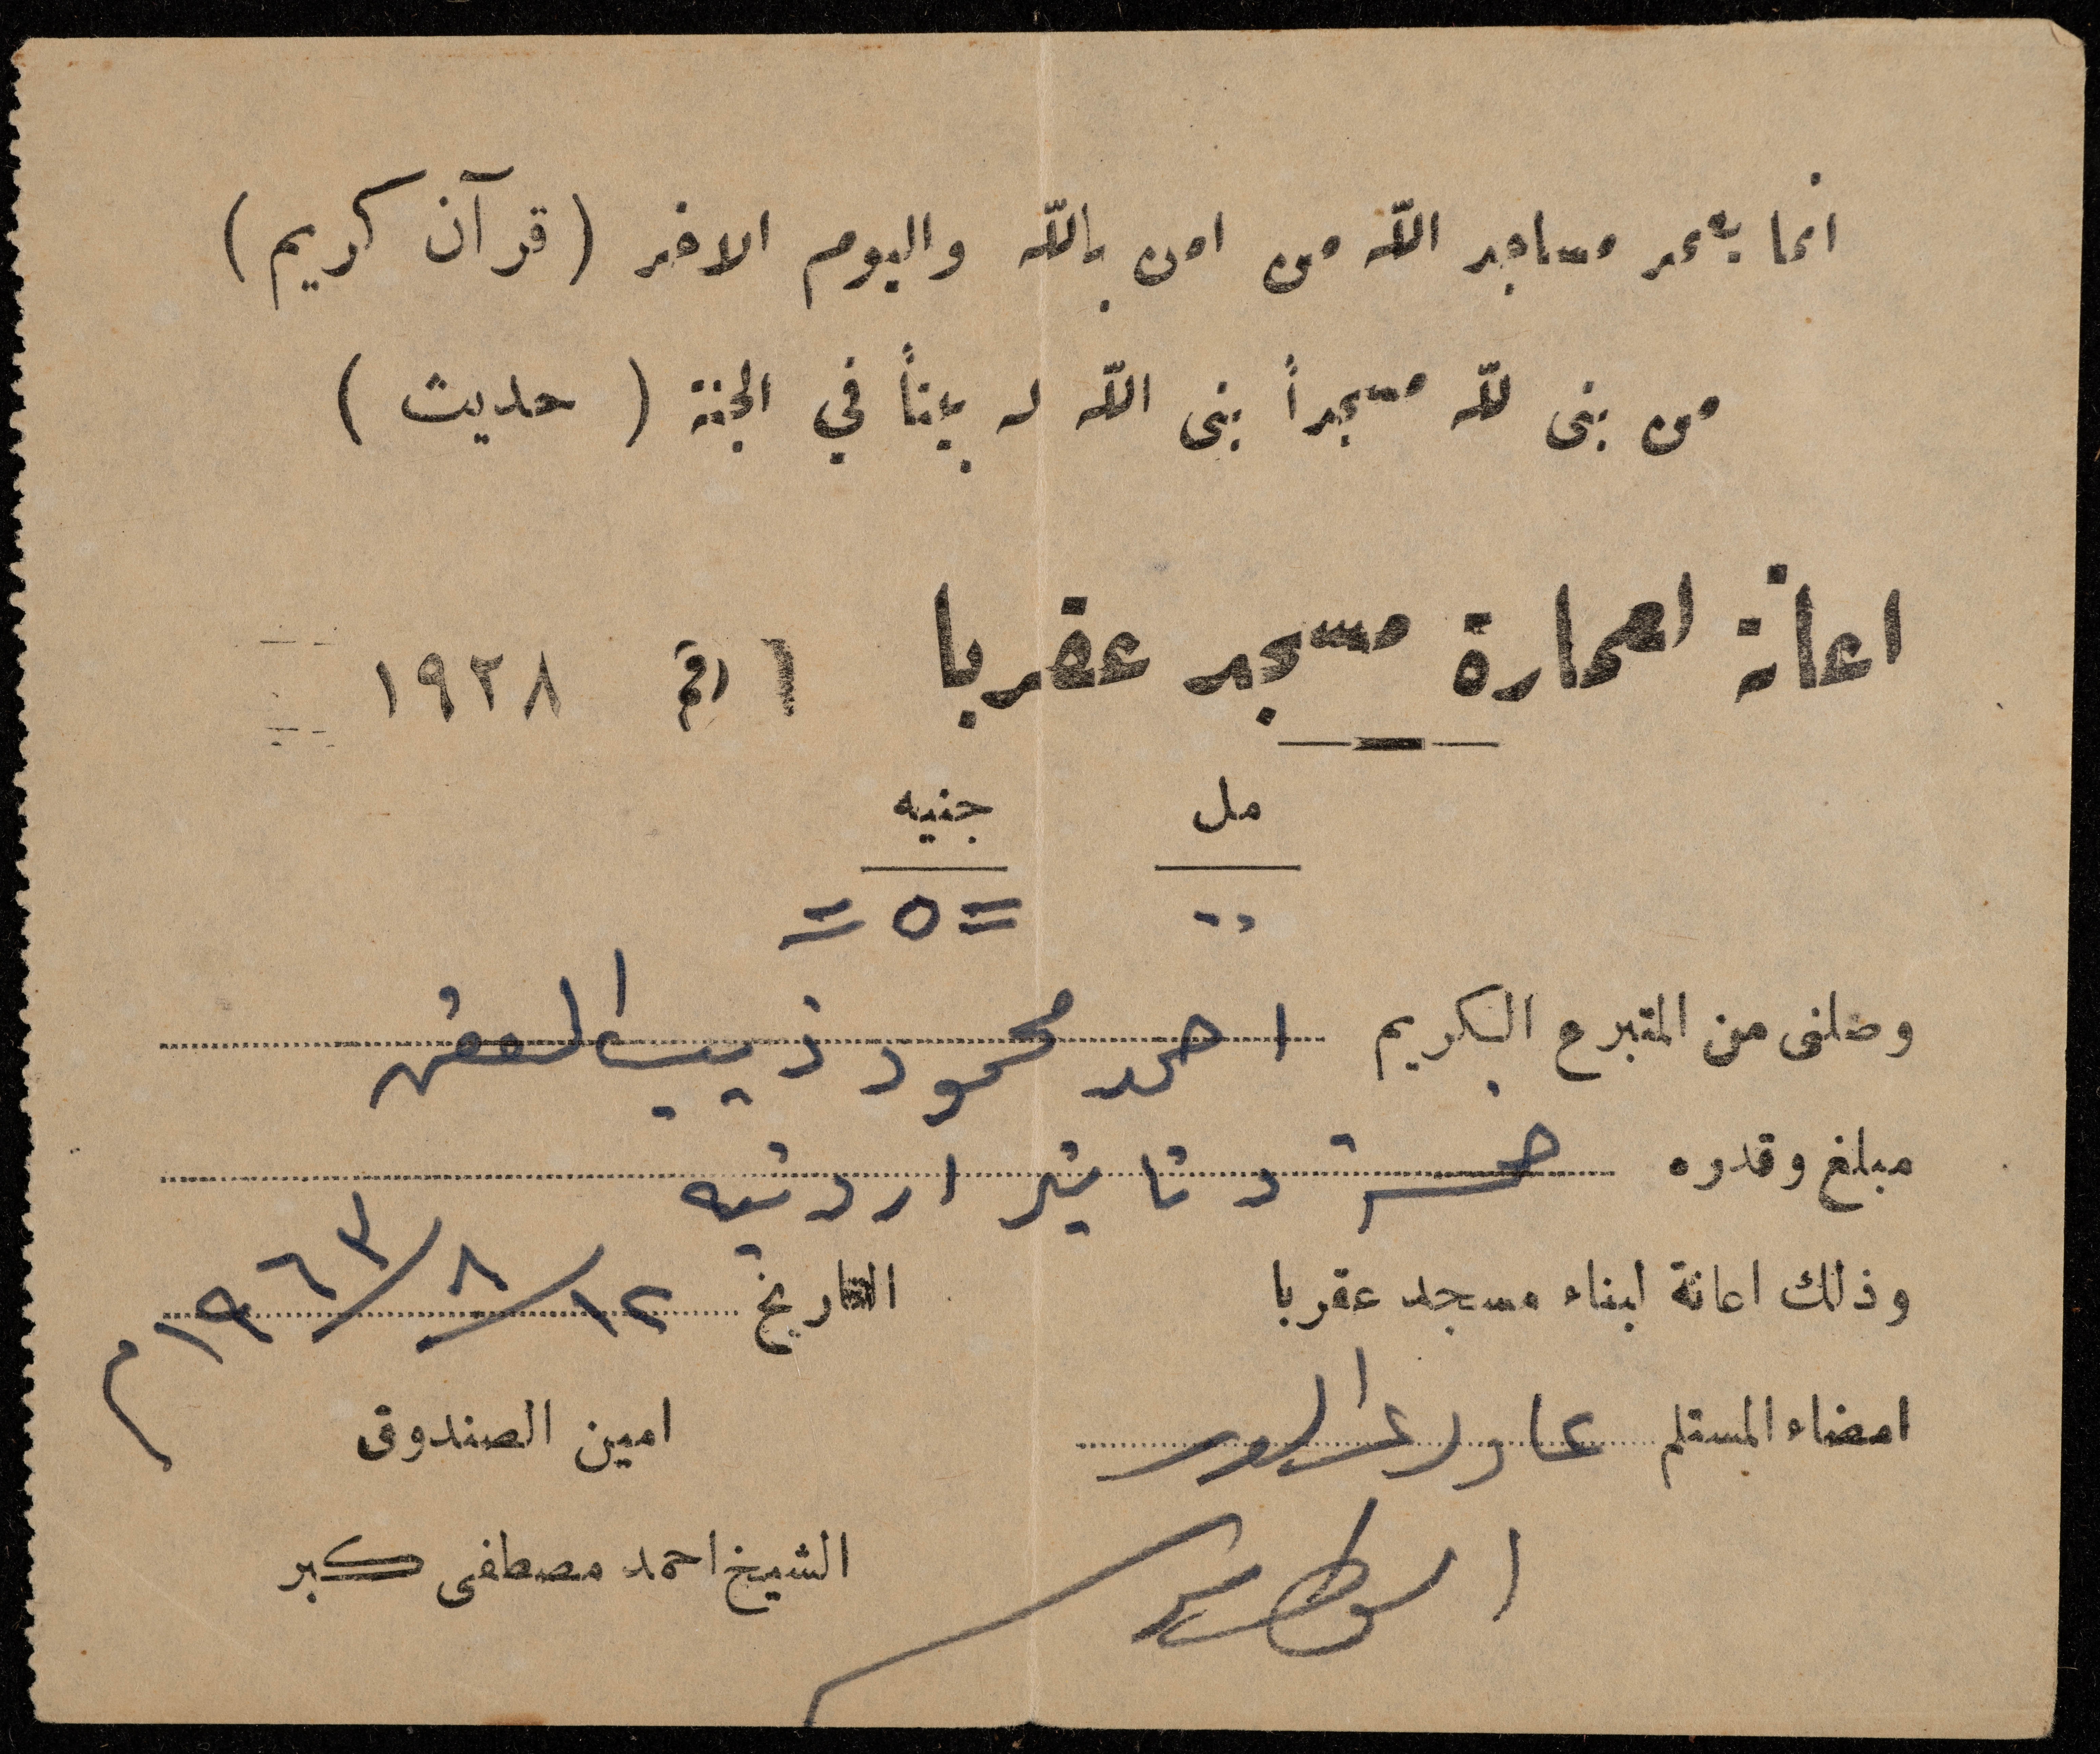 انما يعمر مساجد الله من امن بالله واليوم الاخر (قرآن كريم)
من بنى لله مسجداً بنى الله له بيتاً في الجنة (حديث)
اعانة لعمارة مسجد عقربا رقم ١٩٢٨
مل جنيه
٠٠ =٥=
وصلني من المتبرع الكريم احمد محمود ذيب
مبلغ وقدره خمسة دنانير اردنيه
وذلك اعانة لبناء مسجد عقربا التاريخ ١٢/٨/١٩٦٣م
امضاء المستلم امين الصندوق
الشيخ احمد مصطفى كبر